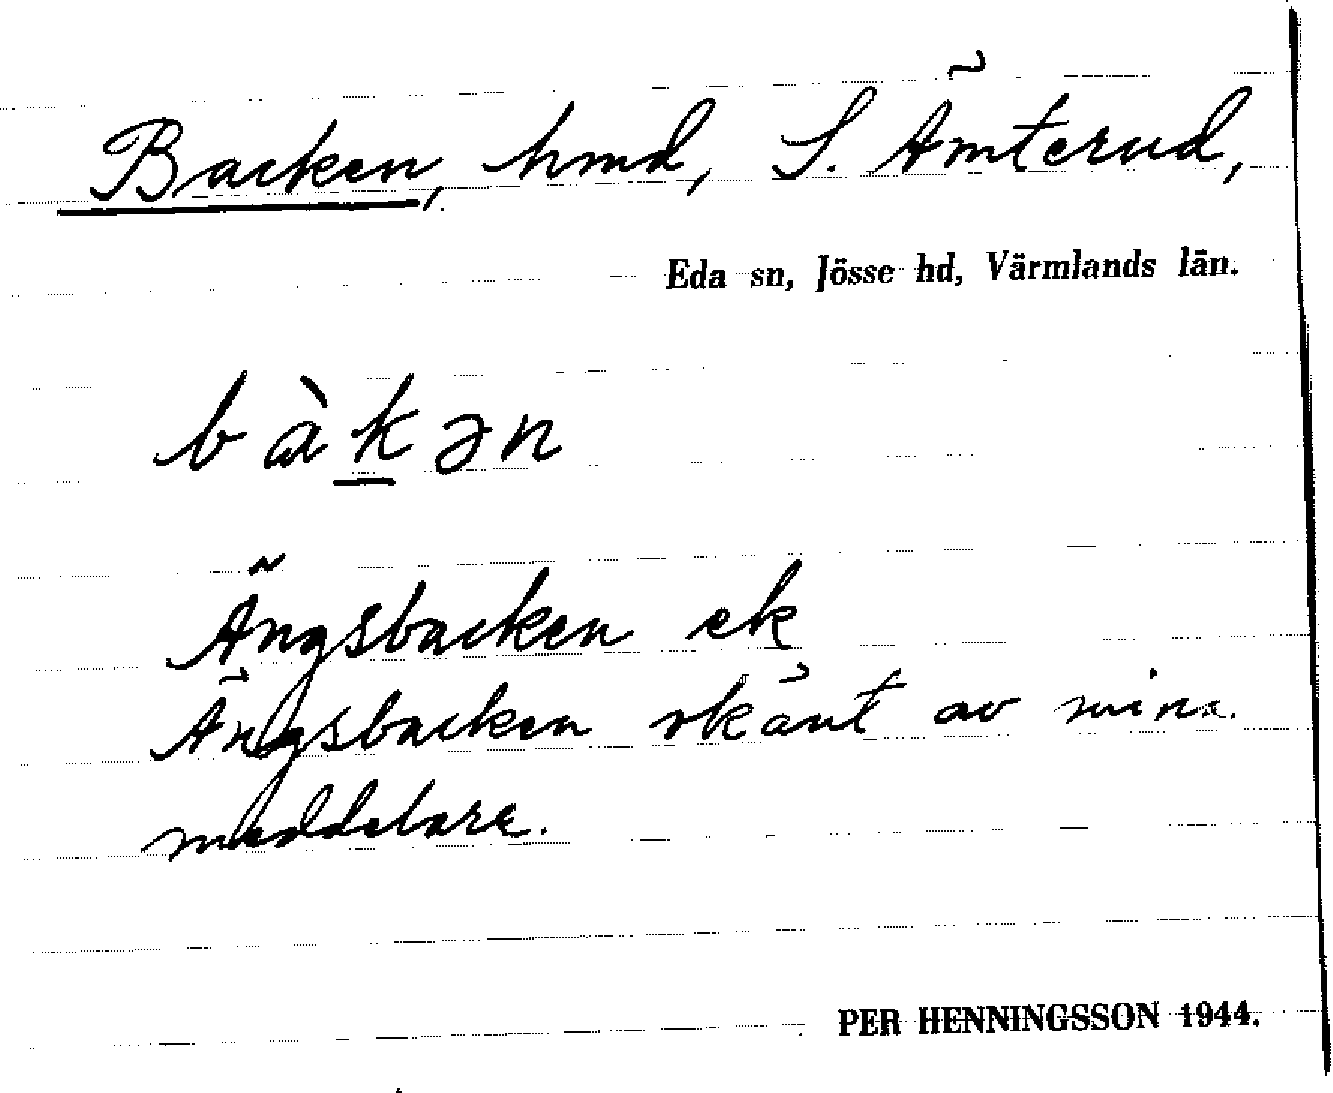 Backen, hmd, S. Ämterud,
Eda sn, Jösse hd, Värmlands län.
bàkən
Ängsbacken ek
Ängsbacken okänt av mina
meddelare.
PER HENNINGSSON 1944.